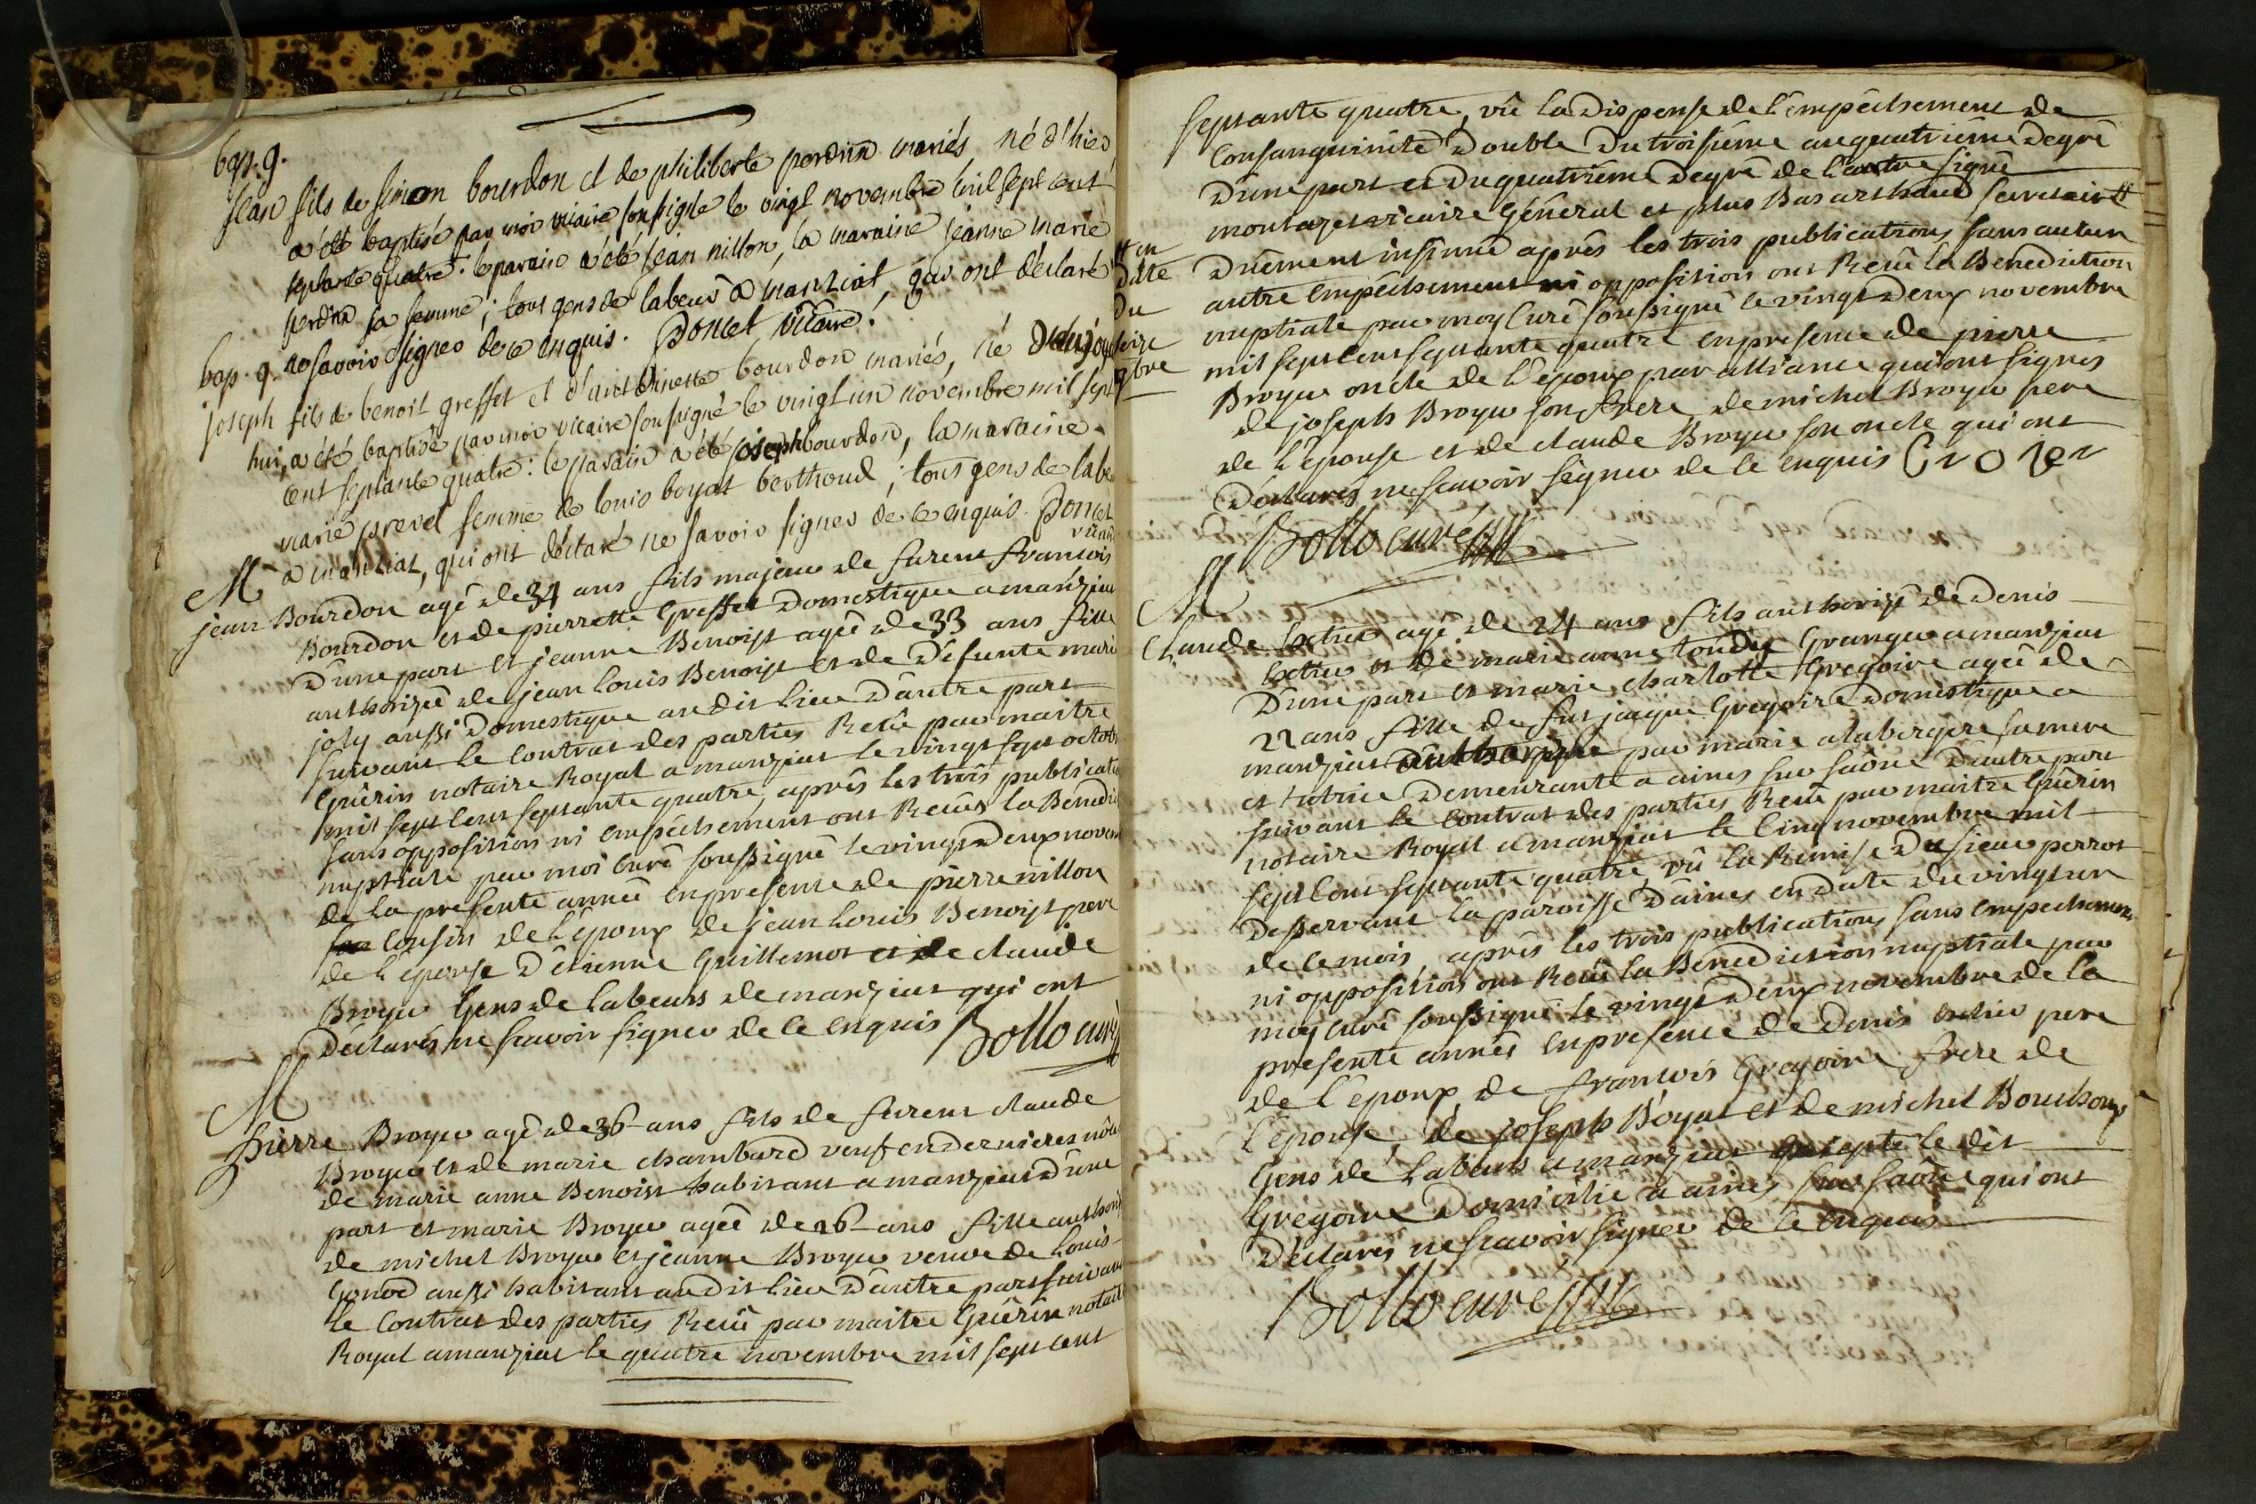 bap. g.
jean fils de simon bourdon et de philiberte perdrix mariés né d'hier
a été baptisé par moi vicaire soussigné le vingt novembre mil sept cent
septante quatre: le parain a été jean nillon, la maraine jeanne marie
perdrix sa femme; tous gens de labeur à manziat, qui ont déclaré
ne savoir signer de ce enquis. Poncet vicaire.
bap. g.
joseph fils de benoit greffet et d'antoinette bourdon mariés, né d'aujour
hui, a été baptisé par moi vicaire soussigné le vingt un novembre mil sept
cent septante quatre: le parain a été joseph bourdon, la maraine
marie prevel femme de louis boyat berthoud; tous gens de labe
à manziat, qui ont déclaré ne savoir signer de ce enquis. Poncet
vicaire
M
jean Bourdon agé de 34 ans fils majeur de furent francois
Bourdon et de pierrette Greffet Domestique a manziat
D'une part et jeanne Benoist agée de 33 ans fille
authorizée de jean Louis Benoist et de Défunte marie
joly aussi Domestique au dit lieu D'autre part
suivant le Contrat des parties Recû par maitre
Guérin notaire Royal a manziat le vingt sept octob
mil sept Cent septante quatre, après les trois publicati
sans opposition ni empêchement ont Recûs la Benedic
nuptiale par moi Curé soussigné le vingt Deux novem
de la presente année en presence de pierre nillon
Cousin de L'époux de jean Louis Benoist pere
de L'épouse D'étienne Guillemot et de claude
Broyer Gens de Labeurs de manziat qui ont
Déclarés ne scavoir signer de Ce enquis Bollo curé
M
pierre Broyer agé de 36 ans fils de furent claude
Broyer et de marie chambard veuf en dernieres nôce
de marie anne Benoist habitant a manziat D'une
part et marie Broyer agée de 26 ans fille authori
de michel Broyer et jeanne Broyer veuve de Louis
Gonod aussi habitant au dit lieu D'autre part suivant
le Contrat des parties Recû par maitre Guérin notai
Royal a manziat le quatre novembre mil sept cent
septante quatre, vû la Dispense de L'empêchement de
Consanguinité Double Du troisième au quatrième Degré
D'une part et Du quatrième Degré de L'autre signé
montazet vicaire Général et plus Bas arthaud secretaire #
# en
date
du
seize
9bre
Dûement insinuée après les trois publications sans aucun
autre empêchement ni opposition ont Recûs la Benediction
nuptiale par moy Curé soussigné le vingt Deux novembre
mil sept Cent septante quatre en presence de pierre
Broyer oncle de L'époux par alliance qui ont signés
de joseph Broyer son frere de michel Broyer pere
de L'épouse et de claude Broyer son oncle qui ont
Déclarés ne scavoir signer de Ce enquis
Bollo curé
M
Claude agé de 24 ans fils authorizé de Denis
et de marie anne Grangeur a manziat
D'une part et marie charlotte Gregoire agée de
22 ans fille de fut jacque Gregoire Domestique a
manziat authorizée par marie alabergere sa mere
et tutrice Demeurante a aines sur saône D'autre part
suivant le Contrat des parties Recû par maitre Guérin
notaire Royal a manziat le Cinq novembre mil
sept Cent septante quatre, vû la Remise Du sieur perrot
Desservant la paroisse D'aines en Date du vingt un
de ce mois, après les trois publications sans empechement
ni opposition ont Recûs la Benediction nuptiale par
moy curé soussigné le vingt Deux novembre de la
presente année en presence de Denis pere
de L'époux de francois Gregoire frere de
L'épouse, de joseph Boyat et de michel Bouchoux
Gens de Labeurs a manziat excepté le dit
Gregoire Domicilié a aines sur saône qui ont
Déclarés ne scavoir signer de Ce enquis
Bollo curé